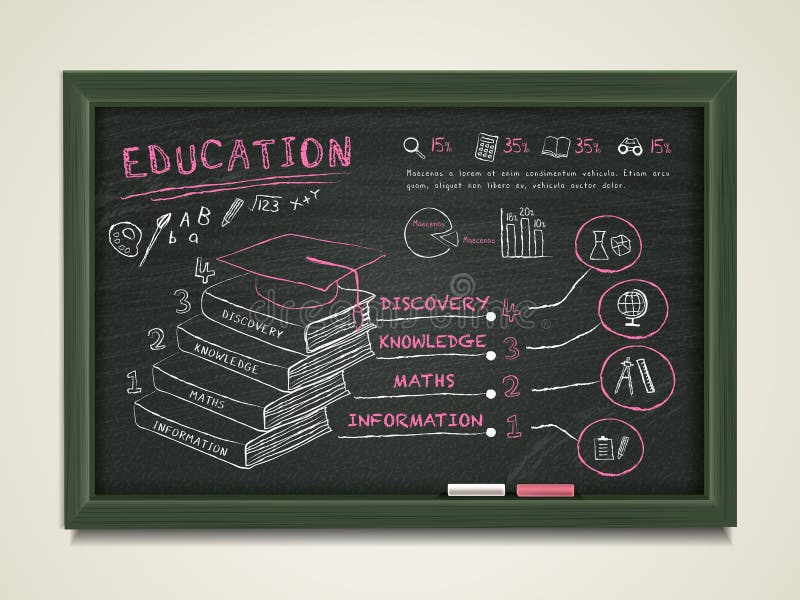 EDUCATION
15% 35% 35% 15%
Maecenas a lorem et sem condimentum vehicula. Mauris erat arcu
quam, aliquet non libero ex, vehicula auctor dolor.
A B
b a
√123 x+y
Maecenas
Maecenas
18% 20% 10%
4
3
2
1
DISCOVERY
KNOWLEDGE
MATHS
INFORMATION
DISCOVERY 4
KNOWLEDGE 3
MATHS 2
INFORMATION 1
dreamstime